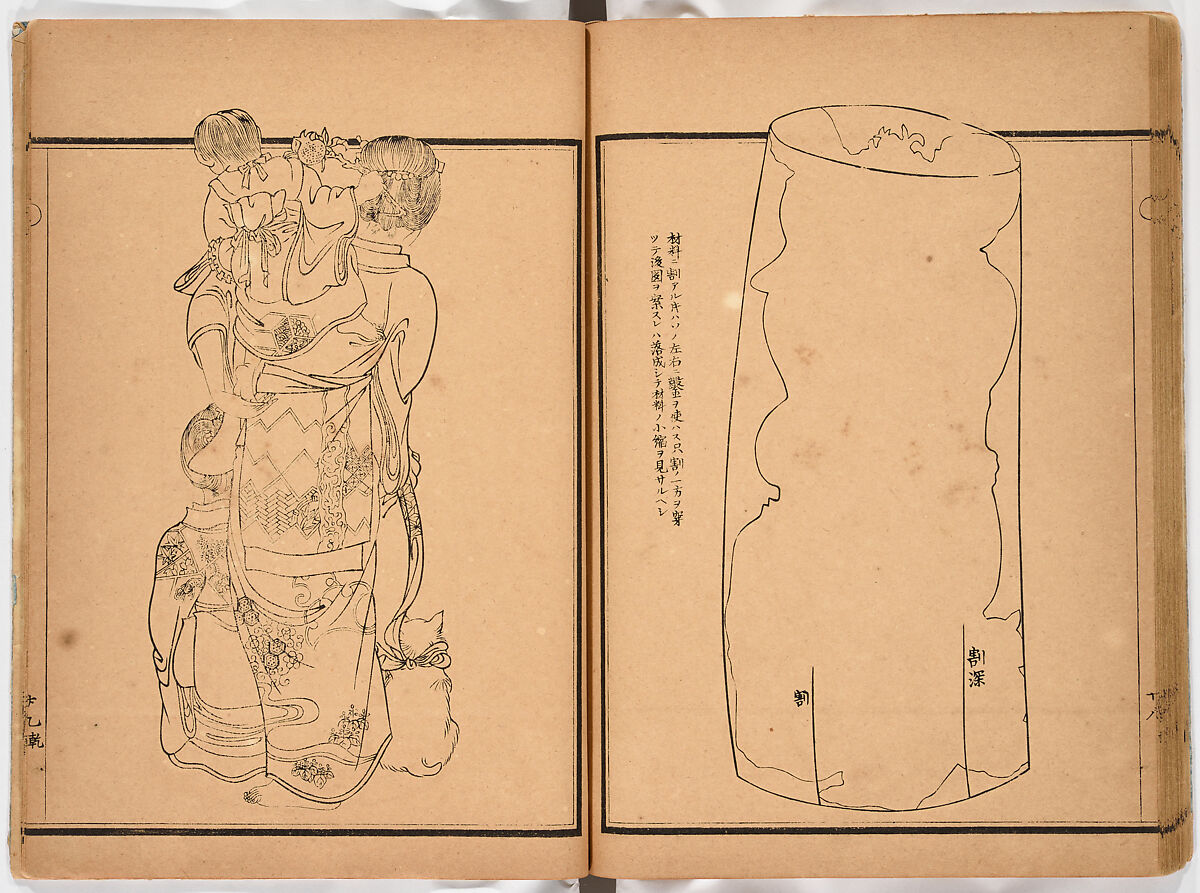 材料ニ割アル時ハソノ左右ニ鑿ヲ使ハス只割ノ一方ヲ穿
ツテ後図ヲ案スレハ落成シテ材料ノ小 ヲ見サルヘシ
割深
割
十八
十九 乾